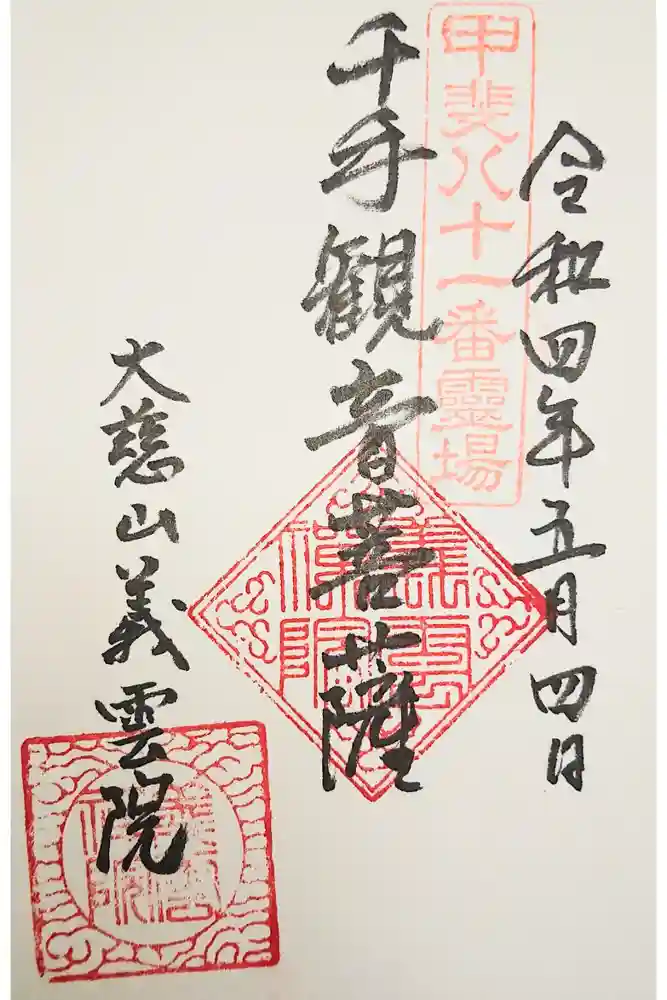 令和四年五月四日
甲斐八十一番靈場
千手観音菩薩
大慈山義雲院